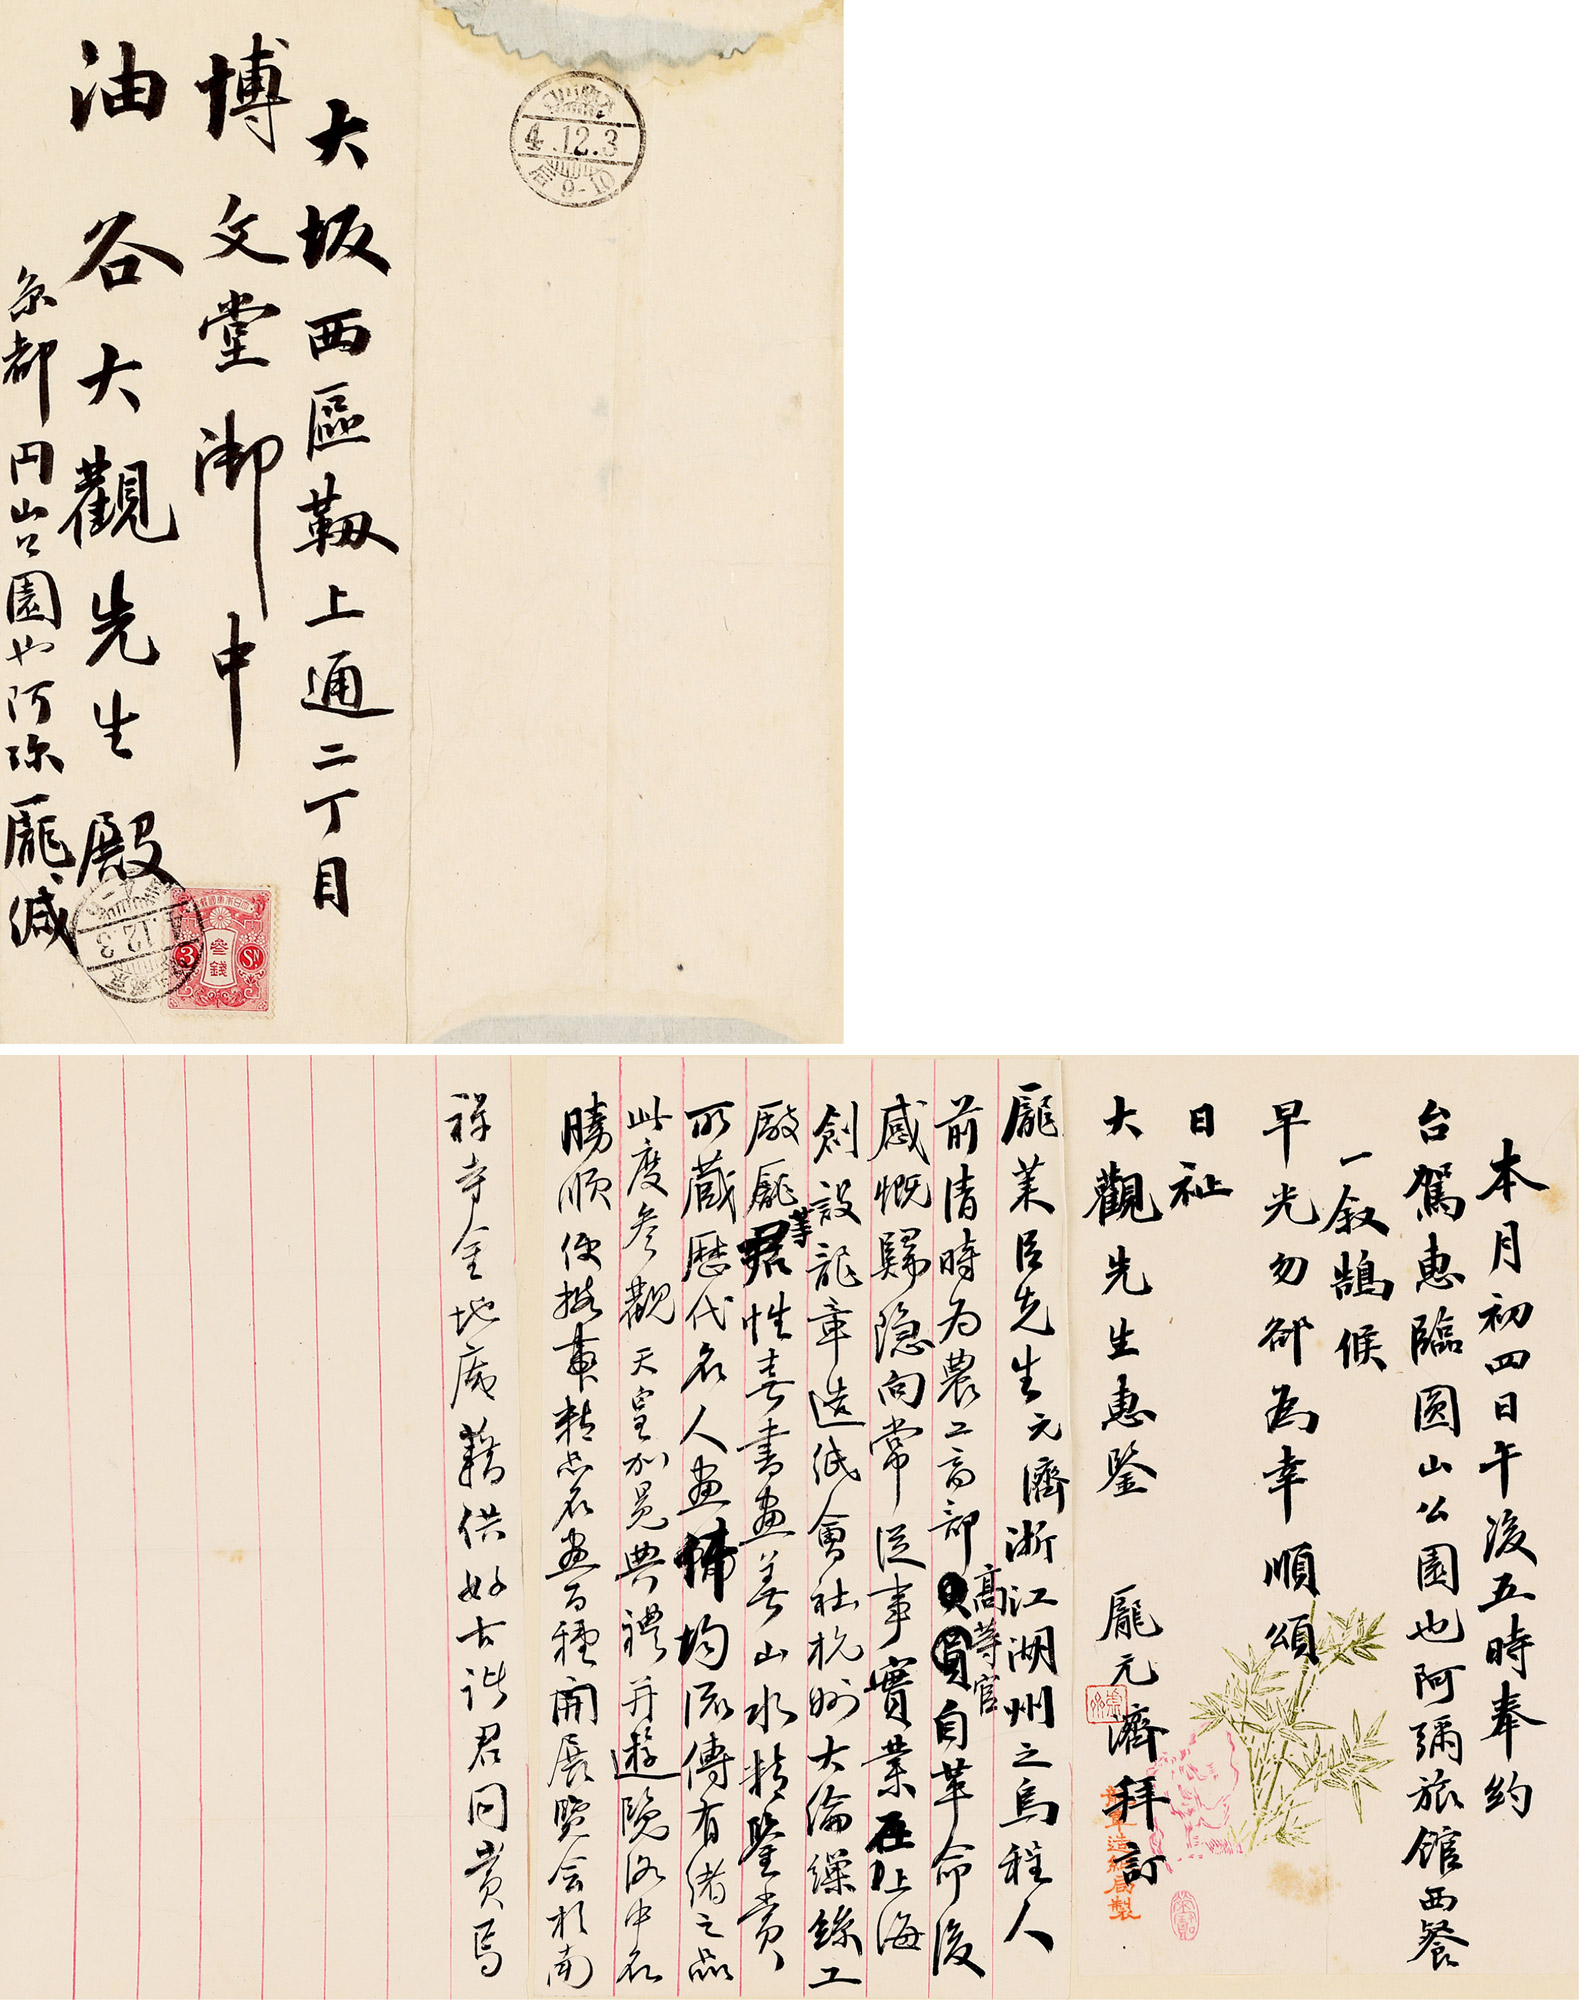 大坂西區靱上通二丁目
博文堂御中
油谷大觀先生殿
京都円山公園也阿弥龐緘
4.12.3
9-10
4.12.3
參錢
3
SN
本月初四日午後五時奉約
台駕惠臨圓山公園也阿彌旅館西餐
一叙鵠候
早光勿卻為幸順頌
日祉
大觀先生惠鑒 龐元濟拜訂
龍章造紙局製
龐萊臣先生元濟浙江湖州之烏程人
前清時为農工商部高等官自革命後
感慨歸隐向常從事實業在上海
創設龍章造紙會社杭州大倫繰絲工
廠龐君等性喜書畫善山水精鑒賞
所藏歷代名人畫均流傳有緒之品
此度參觀天皇加冕典禮并遊覽洛中名
勝順便携帶精品名畫百種開展覽会於南
禅寺金地庵藉供好古諸君同賞焉